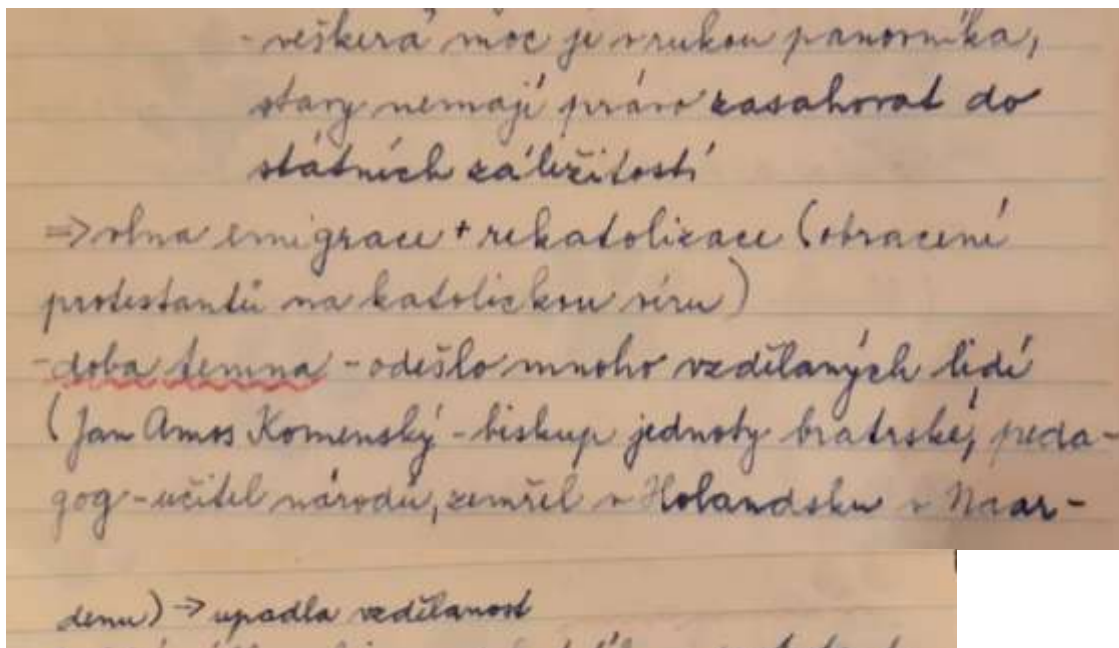 - veškerá moc je v rukou panovníka,
stavy nemají právo zasahovat do
státních záležitostí
=> vlna emigrace + rekatolizace (obracení
protestantů na katolickou víru)
- doba temna - odešlo mnoho vzdělaných lidí
(Jan Amos Komenský - biskup jednoty bratrské, peda-
gog - učitel národů, zemřel v Holandsku v Naar-
denu) -> upadla vzdělanost